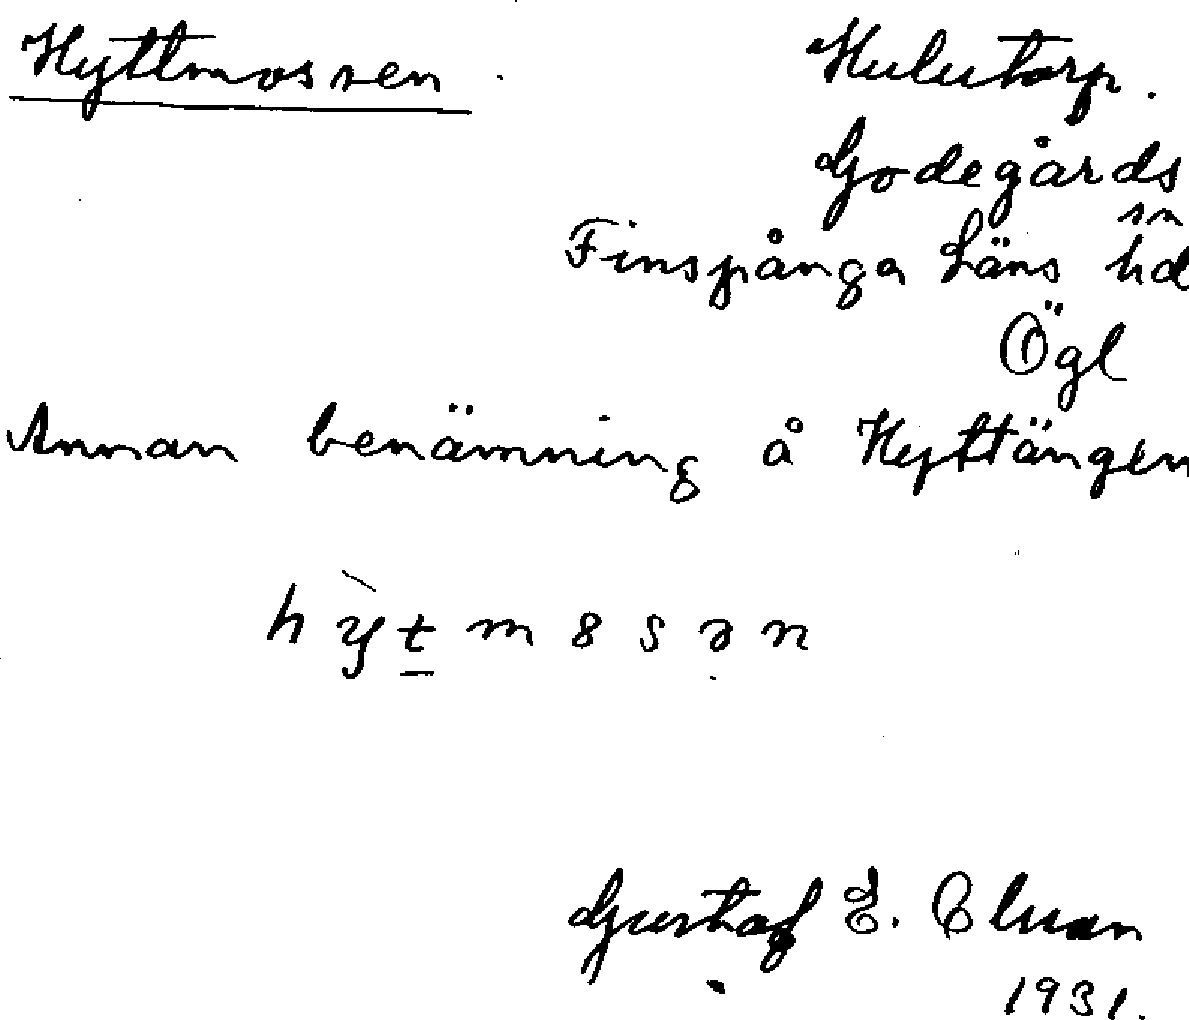 Hyttmossen. Hulutorp.
Godegårds
sn
Finspånga Läns hd
Ögl
Annan benämning å Hyttängen
hỳt̲m8sən
Gustaf E.
1931.